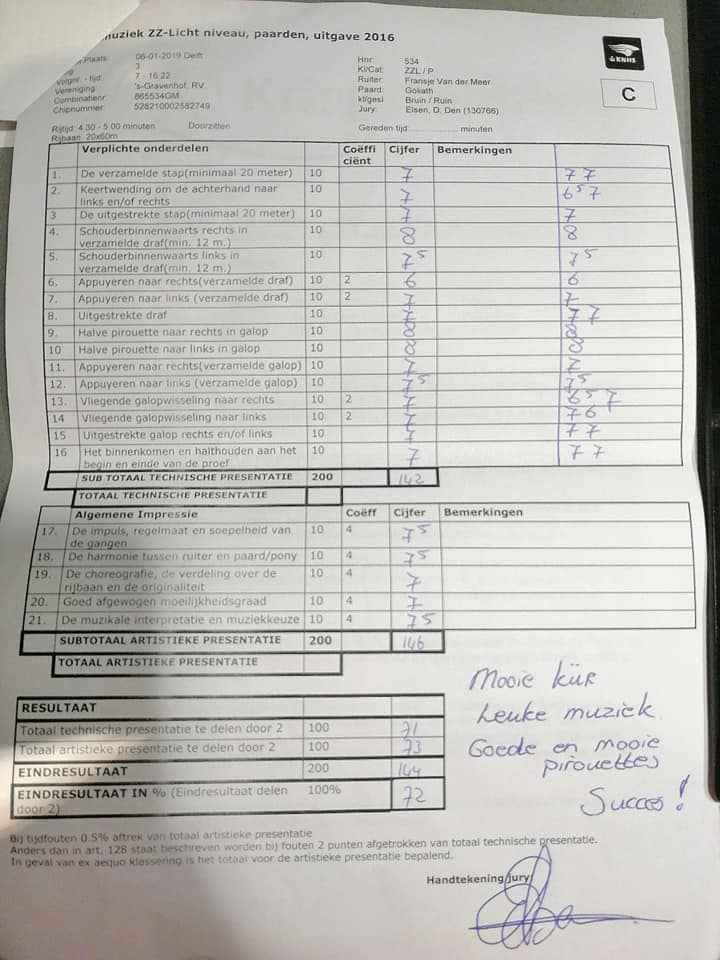 muziek ZZ-Licht niveau, paarden, uitgave 2016
Plaats: 06-01-2019 Delft
3
Volgnr. - tijd: 7 - 16:22
Vereniging 's-Gravenhof, RV.
Combinatienr: 865534GM
Chipnummer: 528210002582749
Hnr: 534
Kl/Cat: ZZL / P
Ruiter: Fransje Van der Meer
Paard: Goliath
kl/gesl: Bruin / Ruin
Jury: Eisen, D. Den (130766)
KNHS
C
Rijtijd: 4.30 - 5.00 minuten Doorzitten Gereden tijd:.................... minuten
Rijbaan: 20x60m
Verplichte onderdelen Coëffi Cijfer Bemerkingen
ciënt
1. De verzamelde stap(minimaal 20 meter) 10 7 7 7
2. Keertwending om de achterhand naar 10 7 6⁵ 7
links en/of rechts
3 De uitgestrekte stap(minimaal 20 meter) 10 7 7
4. Schouderbinnenwaarts rechts in 10 8 8
verzamelde draf(min. 12 m.)
5. Schouderbinnenwaarts links in 10 7⁵ 7⁵
verzamelde draf(min. 12 m.)
6. Appuyeren naar rechts(verzamelde draf) 10 2 6 6
7. Appuyeren naar links (verzamelde draf) 10 2 7 7
8. Uitgestrekte draf 10 7 7 7
9. Halve pirouette naar rechts in galop 10 8 8
10 Halve pirouette naar links in galop 10 8 8
11. Appuyeren naar rechts(verzamelde galop) 10 7 7
12. Appuyeren naar links (verzamelde galop) 10 7⁵ 7⁵
13. Vliegende galopwisseling naar rechts 10 2 7 6⁵ 7
14 Vliegende galopwisseling naar links 10 2 7 7 6
15 Uitgestrekte galop rechts en/of links 10 7 7 7
16 Het binnenkomen en halthouden aan het 10 7 7 7
begin en einde van de proef
SUB TOTAAL TECHNISCHE PRESENTATIE 200 142
TOTAAL TECHNISCHE PRESENTATIE
Algemene Impressie Coëff Cijfer Bemerkingen
17. De impuls, regelmaat en soepelheid van 10 4 7⁵
de gangen
18. De harmonie tussen ruiter en paard/pony 10 4 7⁵
19. De choreografie, de verdeling over de 10 4 7
rijbaan en de originaliteit
20. Goed afgewogen moeilijkheidsgraad 10 4 7
21. De muzikale interpretatie en muziekkeuze 10 4 7⁵
SUBTOTAAL ARTISTIEKE PRESENTATIE 200 146
TOTAAL ARTISTIEKE PRESENTATIE
RESULTAAT
Totaal technische presentatie te delen door 2 100 71
Totaal artistieke presentatie te delen door 2 100 73
EINDRESULTAAT 200 144
EINDRESULTAAT IN % (Eindresultaat delen 100% 72
door 2)
Mooie kür
Leuke muziek
Goede en mooie
pirouettes
Succes!
Bij tijdfouten 0.5% aftrek van totaal artistieke presentatie
Anders dan in art. 128 staat beschreven worden bij fouten 2 punten afgetrokken van totaal technische presentatie.
In geval van ex aequo klassering is het totaal voor de artistieke presentatie bepalend.
Handtekening jury